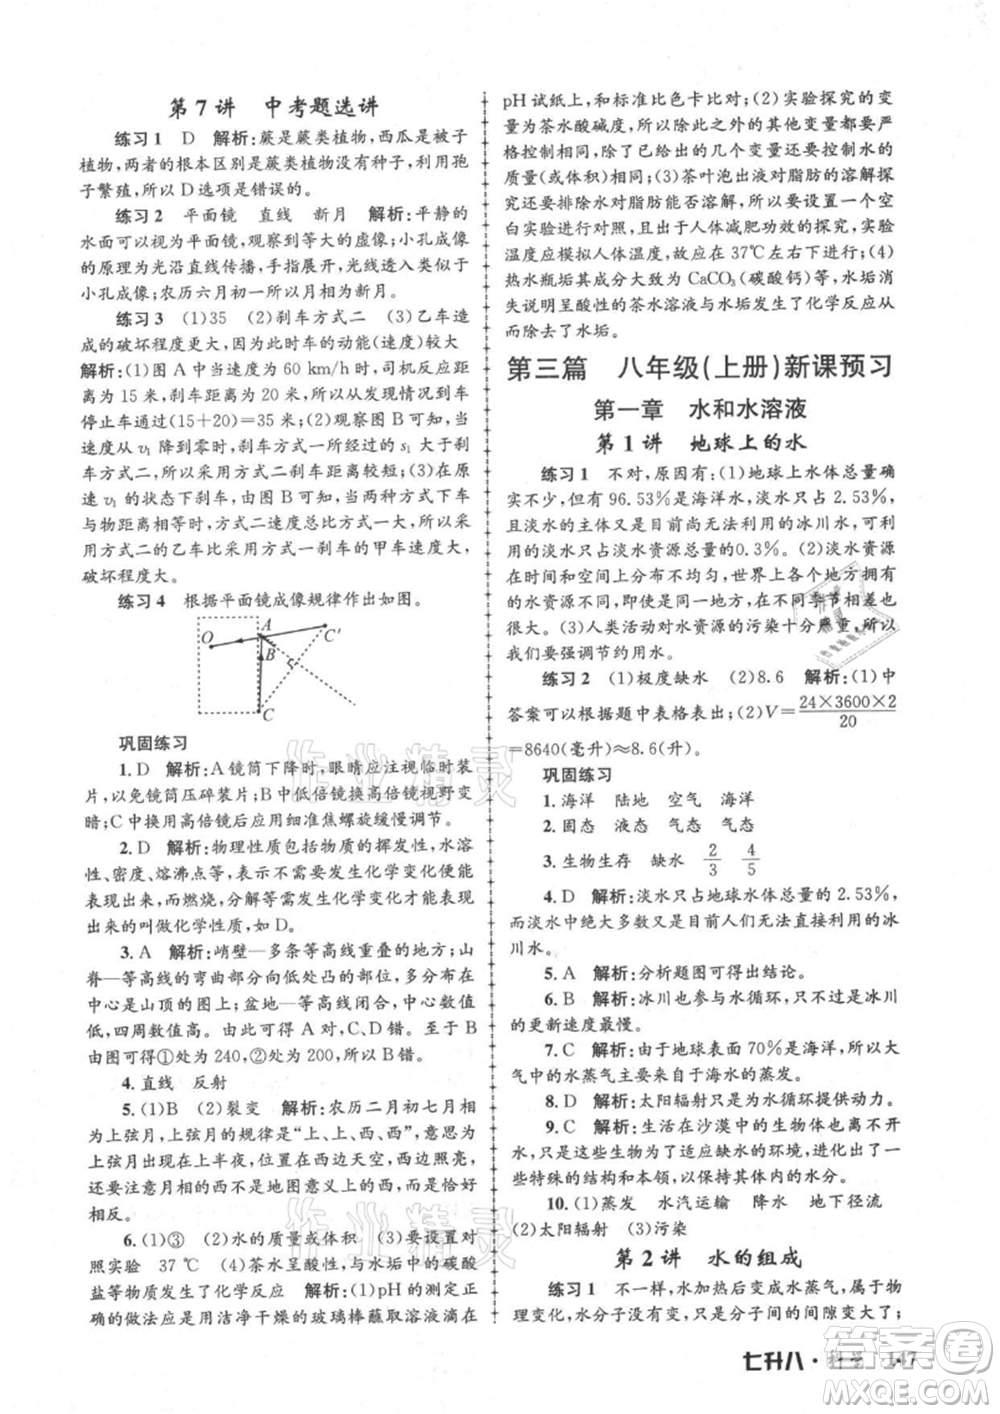 第 7 讲　中考题选讲
练习 1　D　解析:蕨是蕨类植物,西瓜是被子
植物,两者的根本区别是蕨类植物没有种子,利用孢
子繁殖,所以 D 选项是错误的。
练习 2　平面镜　直线　新月　解析:平静的
水面可以视为平面镜,观察到等大的虚像;小孔成像
的原理为光沿直线传播,手指展开,光线透过缝隙成
小孔成像;农历六月初一所以月相为新月。
练习 3　(1)35　(2)刹车方式二　(3)乙车造
成的破坏程度更大　此时车的动能(速度)较大
解析:(1)图 A 中当车速为 60 km/h 时,司机反应距
离为 15 米,刹车距离为 20 米,所以司机从发现到车
停止车通过(15+20)=35 米;(2)观察图 B 可知,当
速度从 v₁ 降到零时,刹车方式一通过的 s₁ 大于刹车
方式二,所以采用方式二刹车距离较短。(3)在原
速 v₁ 的状态下刹车,由图 B 可知,当两种刹车方式的
车与物距离相等时,方式二速度大于方式一,所以采
用方式二的乙车比采用方式一刹车的甲车对防护栏
破坏程度大。
练习 4　根据平面镜成像规律作出如图。
O
A
C′
B
C
巩固练习
1. D　解析:A 镜筒下降时,眼睛应注视临时装
片,以免镜筒压碎装片;B 中低倍镜换高倍镜视野变
暗;C 中用高倍镜后应用细准焦螺旋缓慢调节。
2. D　解析:物理性质包括物质的挥发性、水溶
性、密度、熔沸点等),表示不需要发生化学变化就能
表现出来的性质。而燃烧,分解等需要发生化学变化
的叫做化学性质,如 D。
3. A　解析:峭壁—多条等高线重叠的地方;山
脊—等高线的弯曲部分向低处凸的部位,中心数值
大于四周是山顶的图上;盆地—等高线闭合,中心数值
低,四周数值高。由此可以得出 A 对,C、D 错。至于 B
由图可得①处为 240,②处为 200,所以 B 错。
4. 直线　反射
5. (1)B　(2)裂变　解析:农历二月初七月相
为上弦月,上弦月的规律是“上、上、西、西”,意思是
上弦月出现在上半夜,在西边天空,西边亮,
还要注意月相的西不是地图意义上的西,而是面对月
亮的西。
6. (1)③　(2)水的质量或体积　(3)空白对照
照实验　37 ℃　(4)茶水呈酸性,与水垢中的碳酸
盐等物质发生化学反应　解析:(1)pH 的测定正
确的做法应是用洁净干燥的玻璃棒蘸取溶液滴在
pH 试纸上,和标准比色卡比对;(2)实验探究的变
量为茶水酸碱度,所以除此之外的其他变量都应
严格保持不变,除了已给出的几个变量还缺少水的
质量(或体积)相同;(3)茶叶泡出液对脂肪的溶解探
究实验还需知道水对脂肪能否溶解,故应增加一组空
白实验进行对照,又因为是人体减肥功效的探究,实验
温度应模拟人体温度,故应在 37℃左右下进行;(4)
热水瓶垢其成分大致为 CaCO₃(碳酸钙)等,水垢消
失说明呈酸性的茶水溶液与水垢发生了化学反应从
而除去了水垢。
第三篇　八年级(上册)新课预习
第一章　水和水溶液
第 1 讲　地球上的水
练习 1　不对,原因有:(1)地球上水体总量确
实不少,但有 96.53%是海洋水,淡水只占 2.53%,
且淡水的主体又是目前尚无法利用的冰川水,可利
用的淡水只占淡水资源总量的0.3%。(2)淡水资源
在时间和空间上分布不均匀,世界上各个地方拥有
的水资源不同,在不同季节拥有的水资源差别也
很大。(3)人类活动对水资源的污染十分严重,所以
我们要强调节约用水。
练习 2　(1)极度缺水　(2)8.6　解析:(1)中
答案可以根据题中表格表出;(2)V=24×3600×2/20
=8640(毫升)≈8.6(升)。
巩固练习
1. 海洋　陆地　空气　海洋
2. 固态　液态　气态　气态
3. 生物生存　缺水　2/3　4/5
4. D　解析:淡水只占地球水体总量的 2.53%,
而淡水中绝大多数又是目前人们无法直接利用的冰
川水。
5. A　解析:分析题图可得出结论。
6. B　解析:冰川也参与水循环,只不过,冰川
的更新速度最慢。
7. C　解析:由于地球表面70%是海洋,所以大
气中的水蒸气主要来自于海水的蒸发。
8. D　解析:太阳辐射为水循环提供了动力。
9. C　解析:生活在沙漠中的生物体都有一
些特殊的结构和功能,以保持体内的水分。
10. (1)蒸发　水汽运输　降水　地下径流
(2)太阳辐射　(3)污染
第 2 讲　水的组成
练习 1　不一样,水加热后变成水蒸气,属于物
理变化,水分子没有变,只是分子间的间隙变大了;
七升八·科学　147
作业精灵
作业精灵
答案圈
MXQE.COM